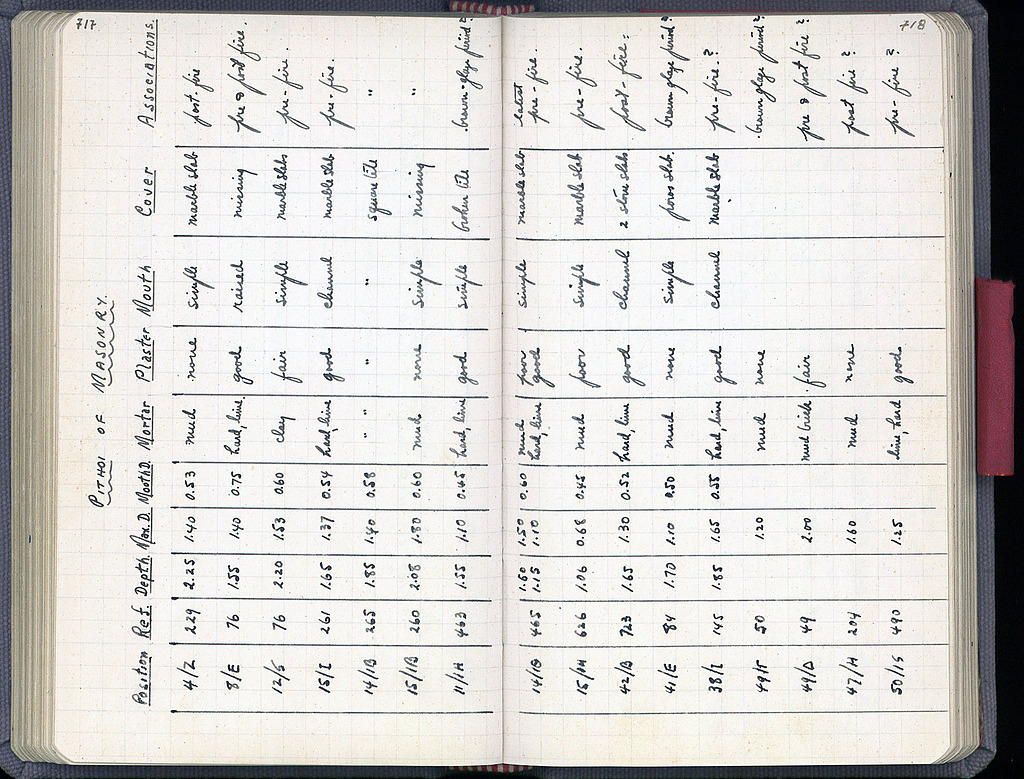 717
718
PITHOI OF MASONRY.
Position Ref. Depth. Max. D. Mouth D. Mortar Plaster Mouth Cover Associations.
4/Z 229 2.25 1.40 0.53 mud none simple marble slab post. fire
8/E 76 1.55 1.40 0.75 hard, lime good raised missing pre & post fire.
12/S 76 2.20 1.53 0.60 clay fair simple marble slabs pre-fire.
15/I 261 1.65 1.37 0.54 hard, lime good channel marble slab pre-fire.
14/IB 265 1.85 1.40 0.58 " " " square tile "
15/IB 260 2.08 1.80 0.60 mud none simple missing "
11/IH 463 1.55 1.10 0.45 hard, lime good simple broken tile brown-glaze period?
14/IΘ 465 1.60 1.50 0.60 mud poor simple marble slab latest
1.15 1.10 hard, lime good pre-fire.
15/IH 626 1.06 0.68 0.45 mud poor simple marble slab pre-fire.
42/B 723 1.65 1.30 0.52 hard, lime good channel 2 stone slabs post-fire.
41/E 84 1.70 1.10 0.50 mud none simple poros slab. brown glaze period?
38/I 145 1.85 1.65 0.55 hard, lime good channel marble slab pre-fire.?
49/Γ 50 1.20 mud none brown glaze period?
49/Δ 49 2.00 mud brick fair pre & post fire?
47/H 204 1.60 mud none post fire?
50/IS 490 1.25 lime, hard good pre-fire?